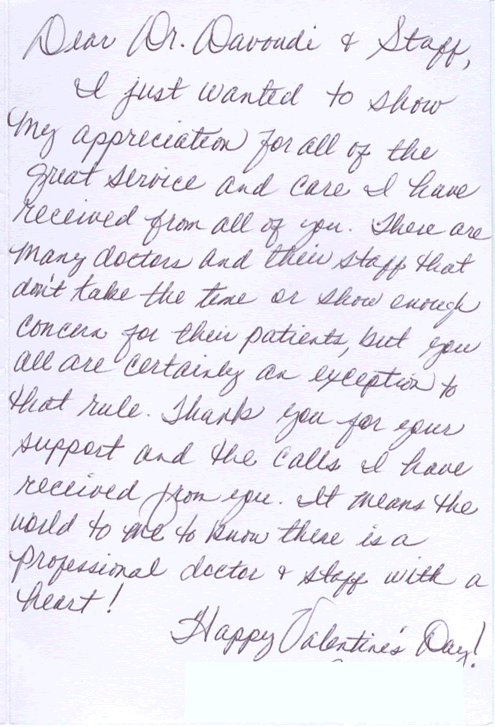 Dear Dr. Davoudi & Staff,
I just wanted to show
my appreciation for all of the
great service and care I have
received from all of you. There are
many doctors and their staff that
don't take the time or show enough
concern for their patients, but you
all are certainly an exception to
that rule. Thank you for your
support and the calls I have
received from you. It means the
world to me to know there is a
professional doctor & staff with a
heart!
Happy Valentine's Day!